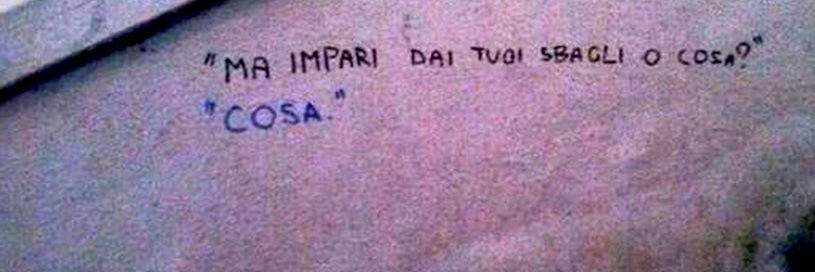 "MA IMPARI DAI TUOI SBAGLI O COSA?"
"COSA."